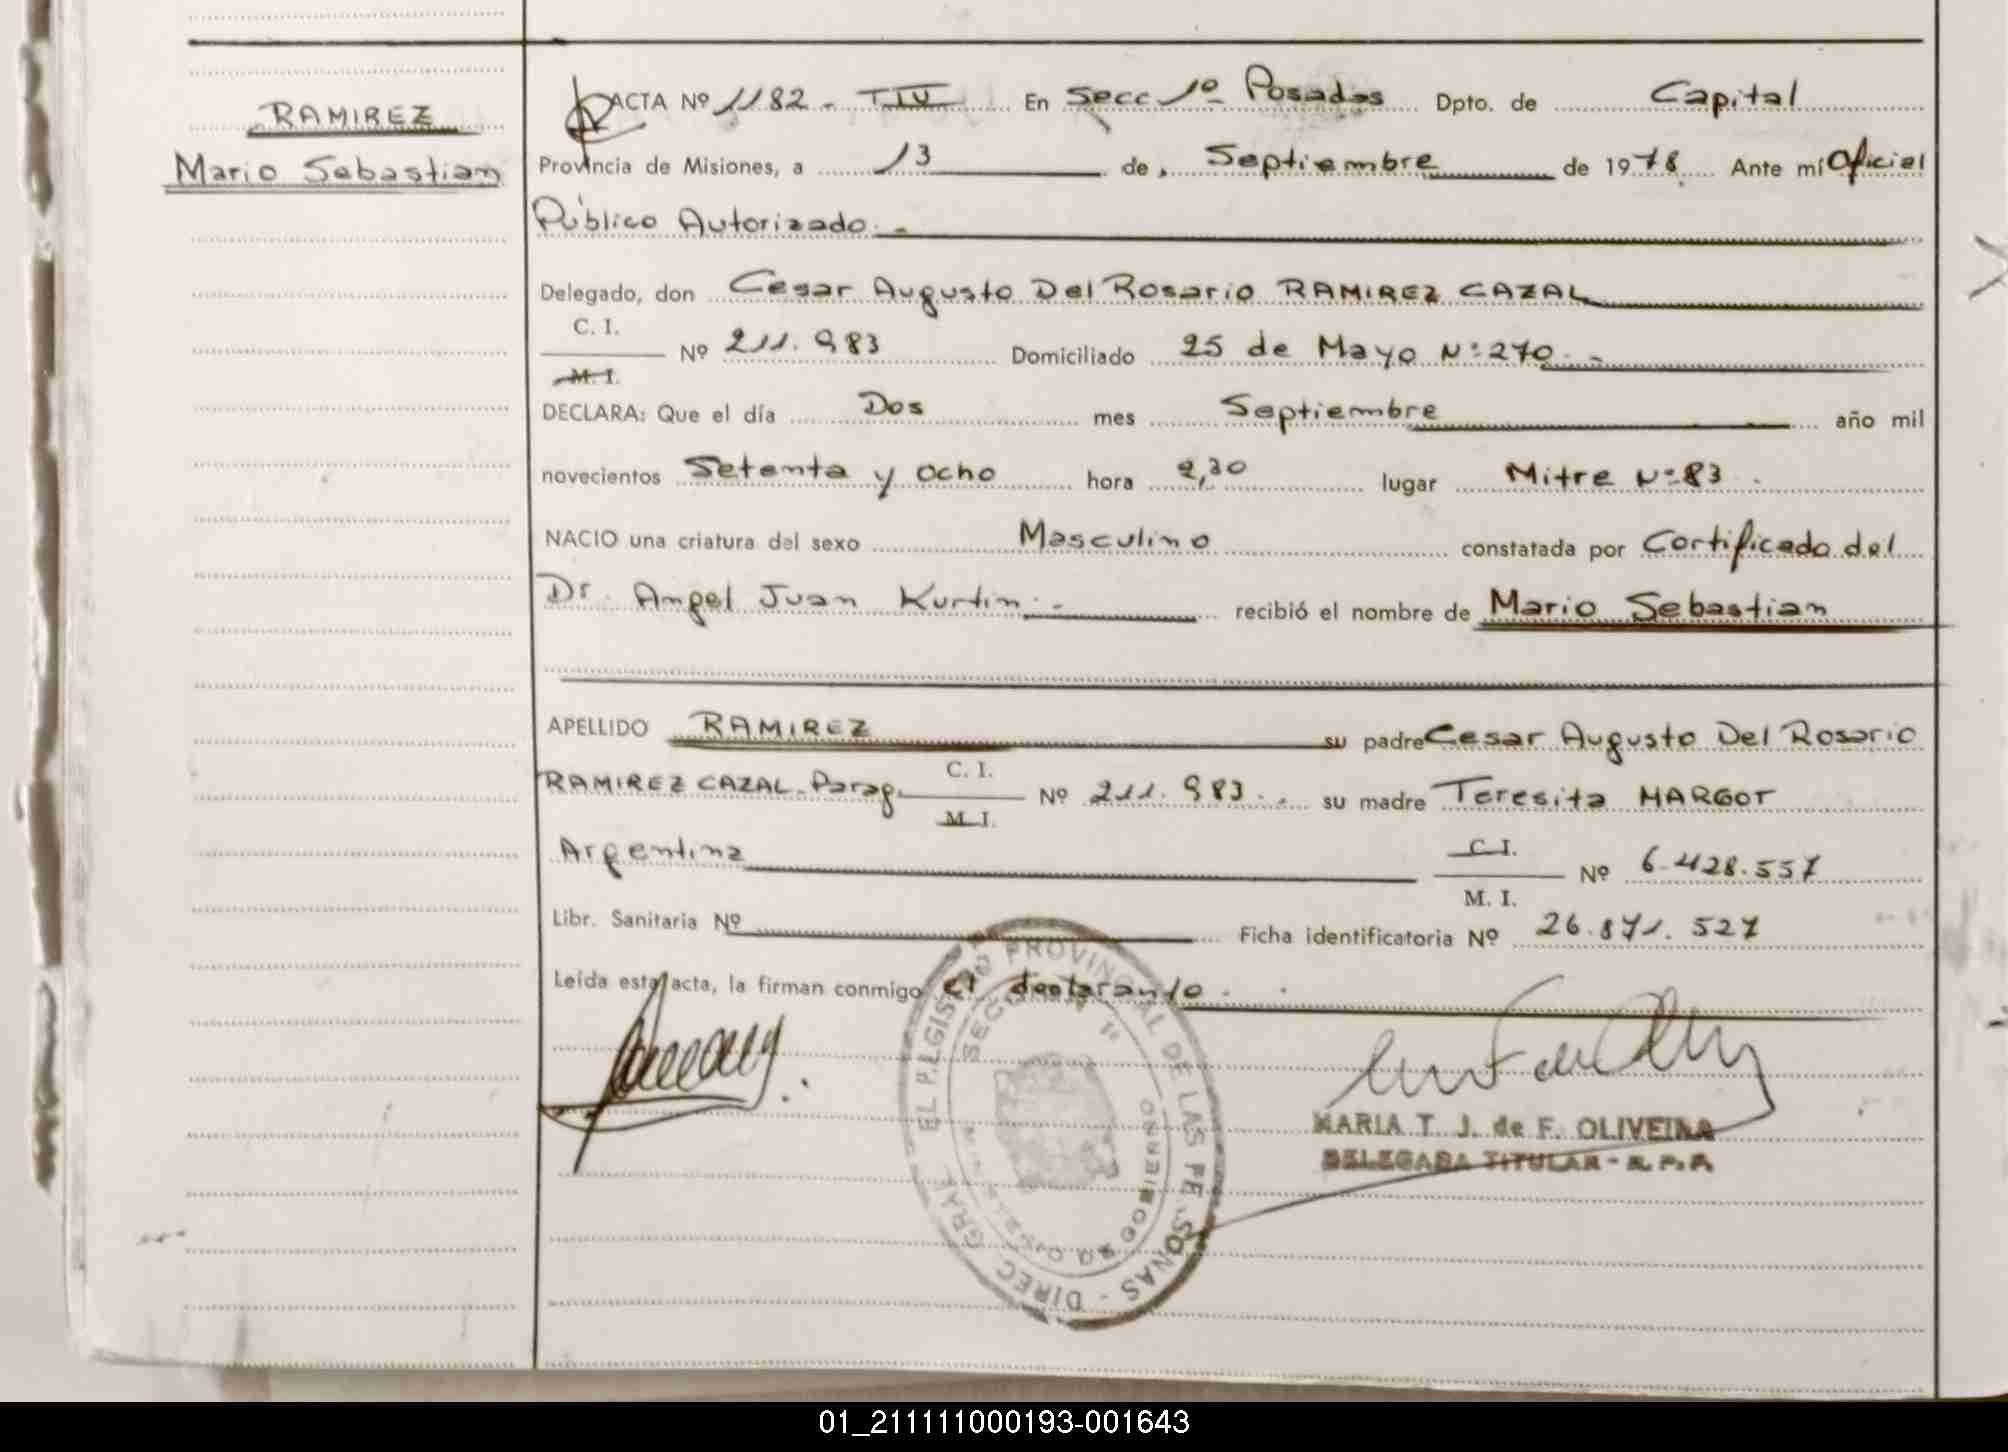 RAMIREZ
Mario Sebastian
ACTA Nº 1182 - T IV En Secc 1º Posadas Dpto. de Capital
Provincia de Misiones, a 13 de Septiembre de 1978 Ante mí Oficial
Público Autorizado.-
Delegado, don Cesar Augusto Del Rosario RAMIREZ CAZAL
C. I.
Nº 211.983 Domiciliado 25 de Mayo Nº 270.-
M. I.
DECLARA: Que el día Dos mes Septiembre año mil
novecientos Setenta y ocho hora 2,30 lugar Mitre Nº 83.
NACIO una criatura del sexo Masculino constatada por Certificado del
Dr. Angel Juan Kurtin.- recibió el nombre de Mario Sebastian
APELLIDO RAMIREZ su padre Cesar Augusto Del Rosario
RAMIREZ CAZAL-Parag. C. I. M. I. Nº 211.983.- su madre Teresita MARGOT
Argentina C. I. M. I. Nº 6.428.557
Libr. Sanitaria Nº Ficha identificatoria Nº 26.871.527
Leída esta acta, la firman conmigo el declarante.
MARIA T. J. de F. OLIVEIRA
DELEGADA TITULAR - R. P. P.
DIREC. GRAL. DEL REGISTRO PROVINCIAL DE LAS PERSONAS
SECCION 1ª
01_211111000193-001643